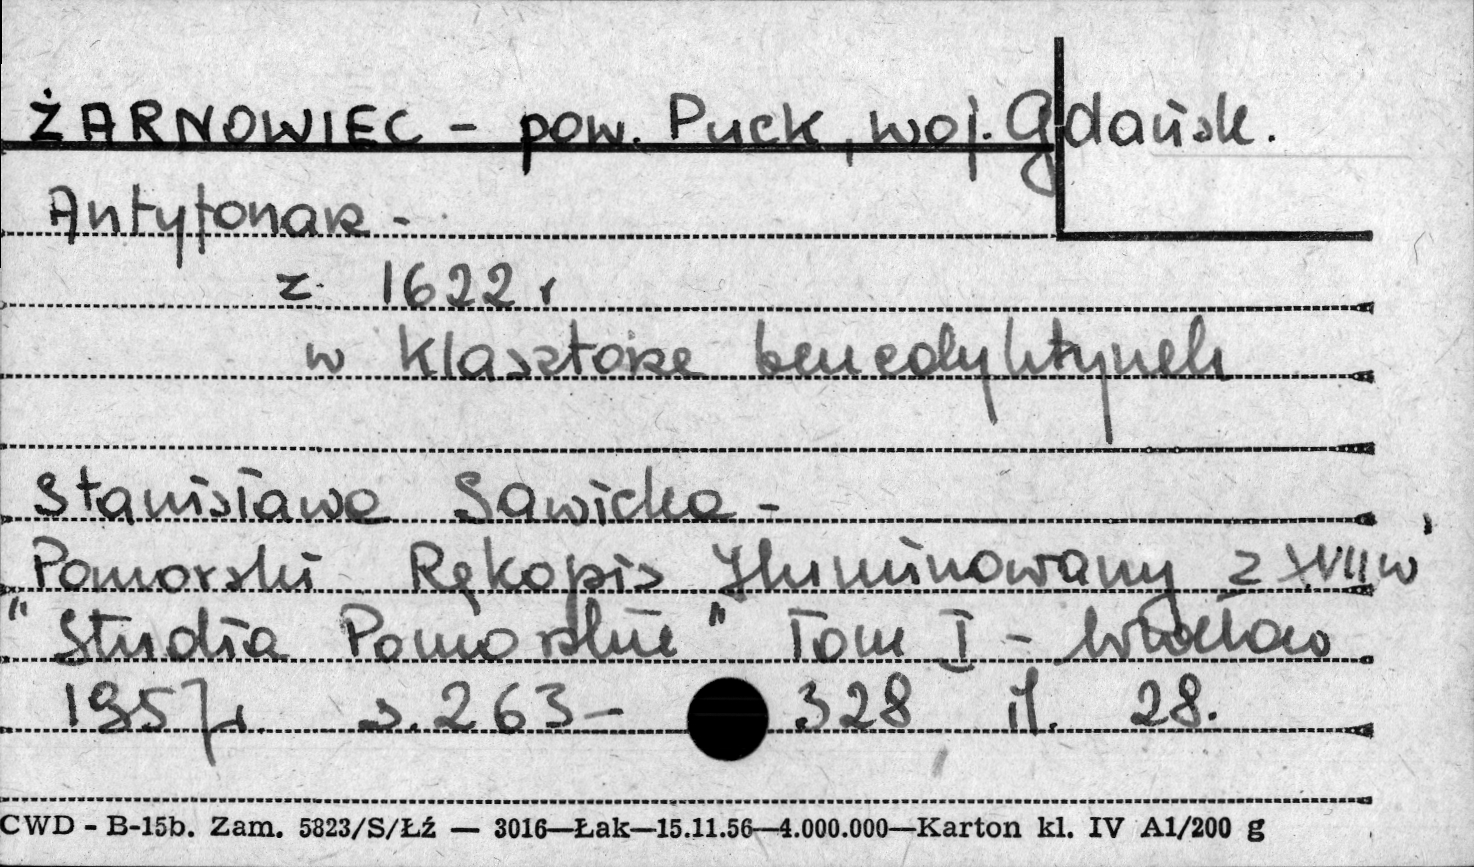 ŻARNOWIEC - pow. Puck, woj. Gdańsk.
Antyfonarz -
z 1622 r
w klasztorze benedyktynek
Stanisława Sawicka -
Pomorski Rękopis Iluminowany z XVII w
"Studia Pomorskie" Tom I - Wrocław
1957 r. s. 263 - 328 il. 28.
CWD - B-15b. Zam. 5823/S/Łź — 3016—Łak—15.11.56—4.000.000—Karton kl. IV A1/200 g